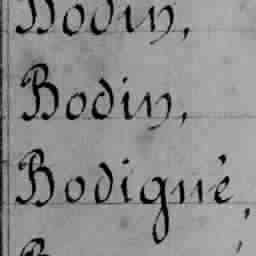 Bodin,
Bodin,
Bodigné,